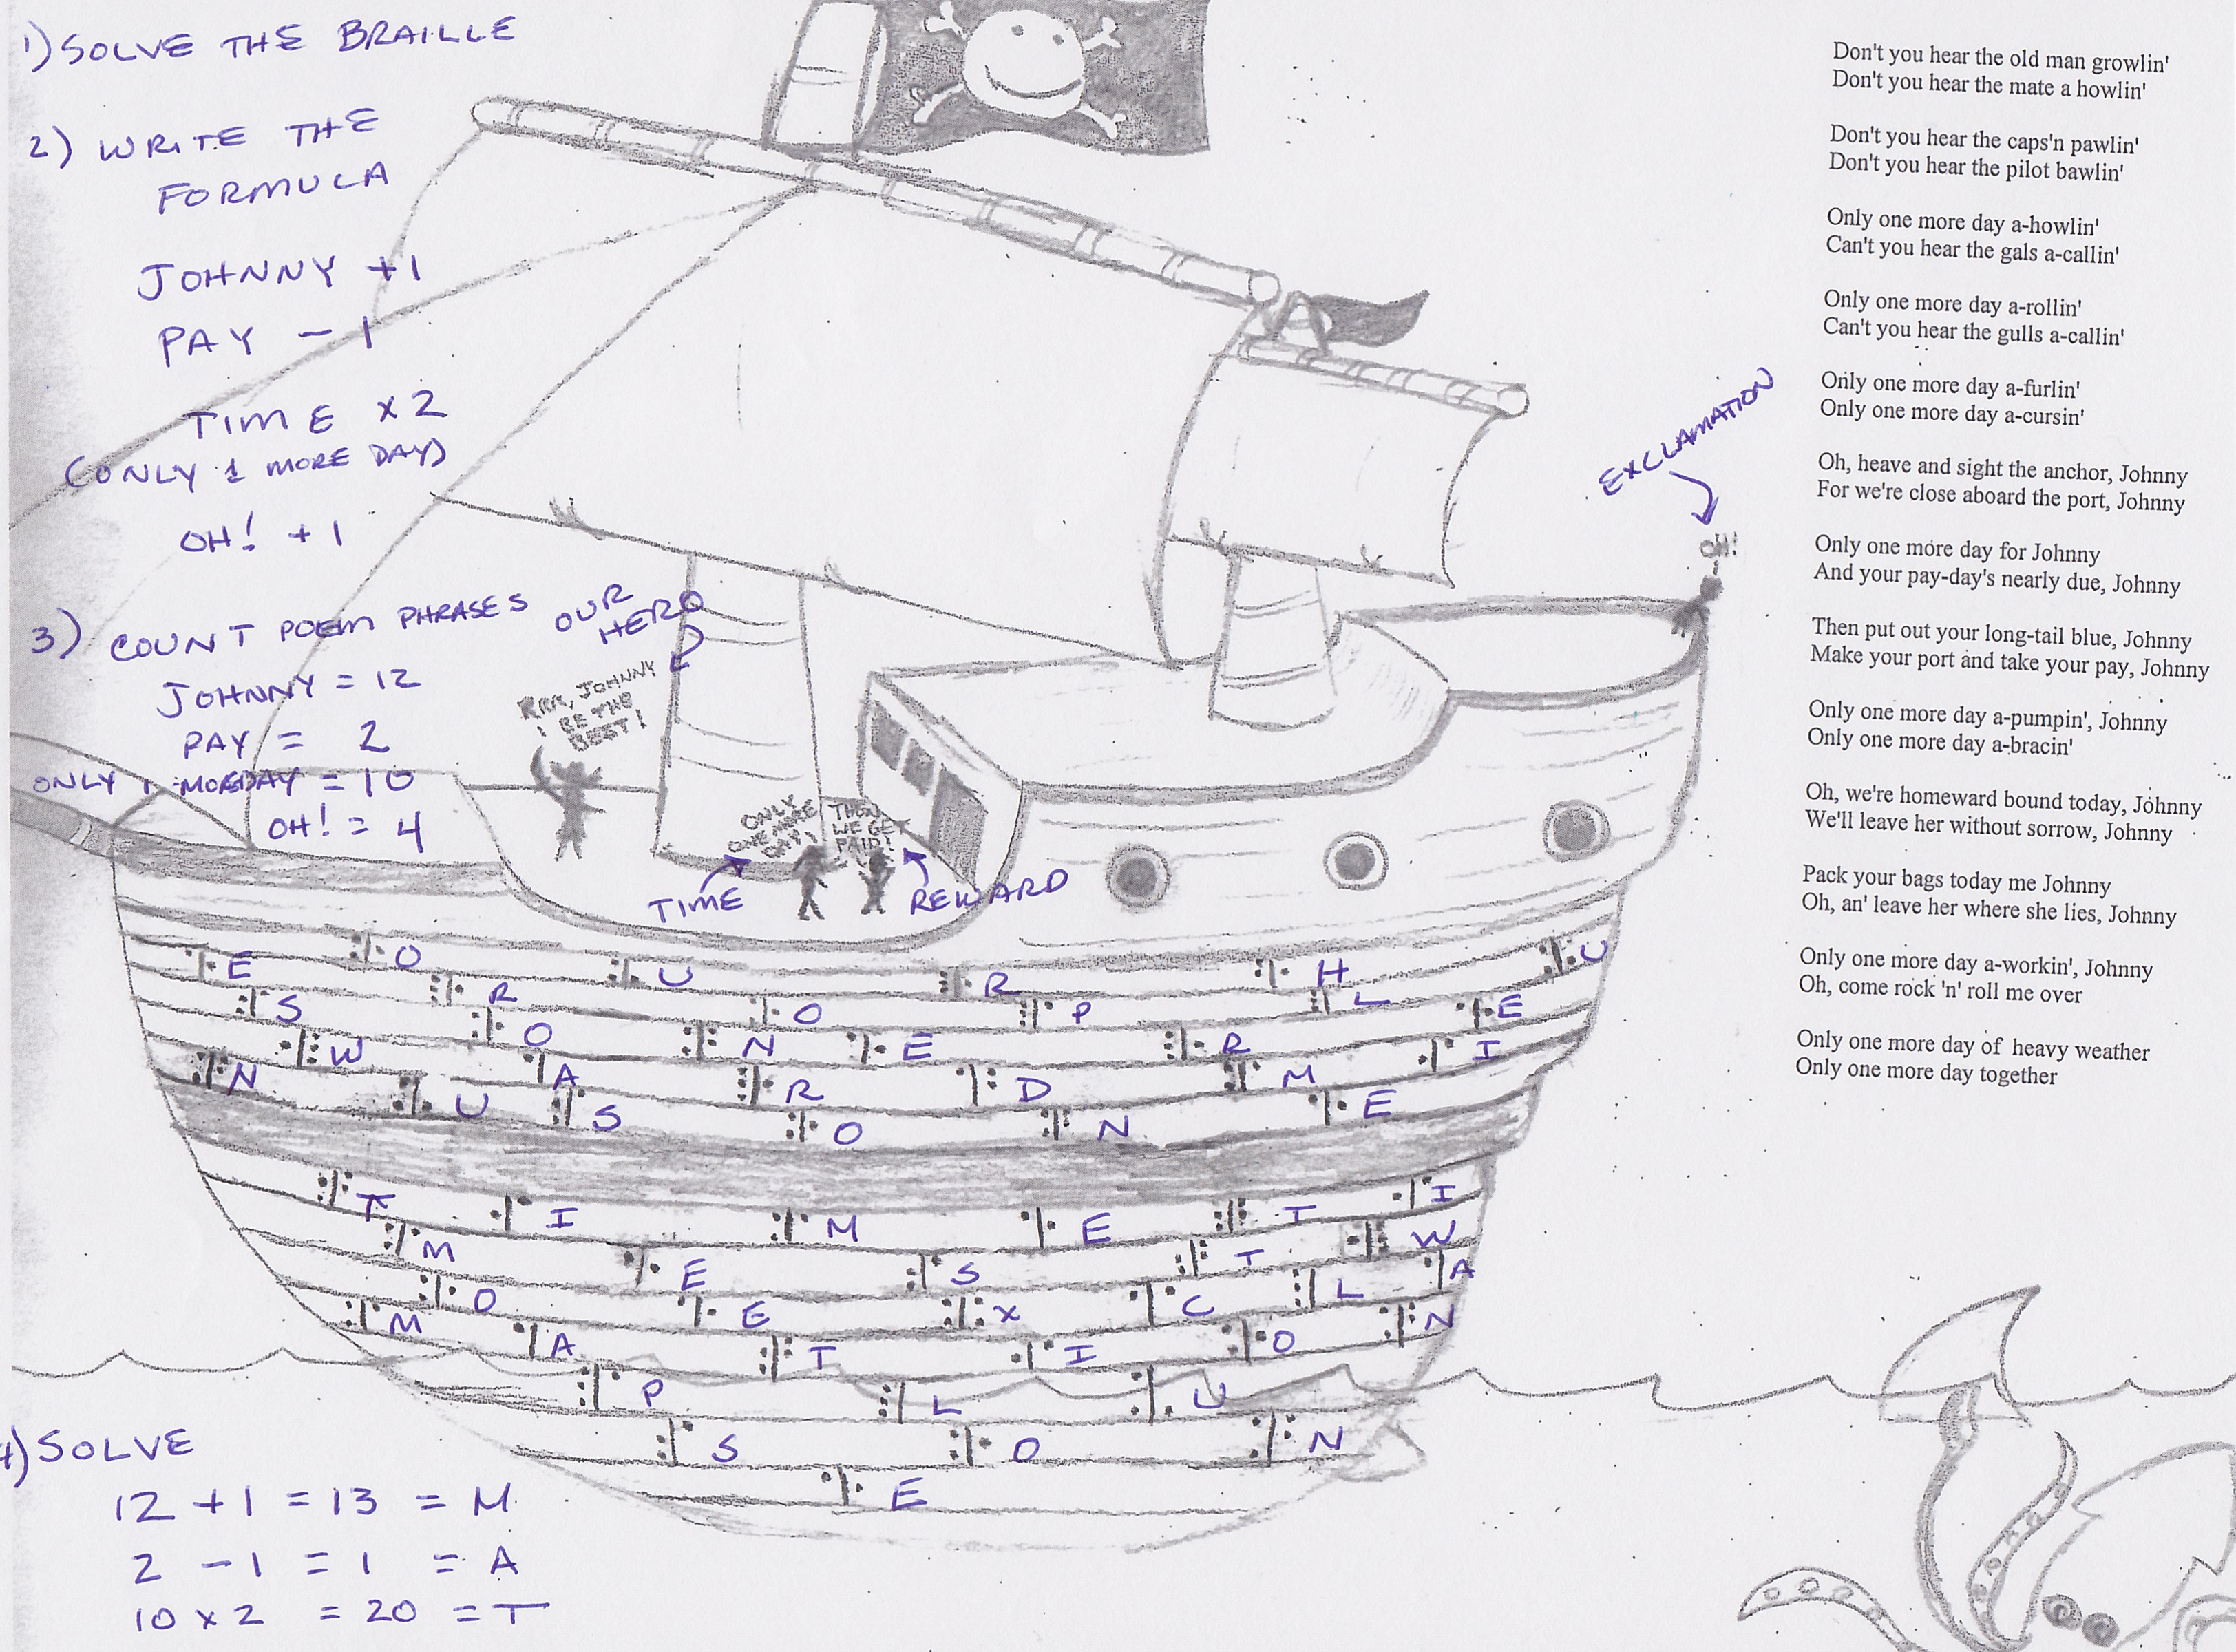 1) SOLVE THE BRAILLE
2) WRITE THE
FORMULA
JOHNNY +1
PAY - 1
TIME x2
(ONLY 1 MORE DAY)
OH! + 1
3) COUNT POEM PHRASES
JOHNNY = 12
PAY = 2
ONLY 1 MOREDAY = 10
OH! = 4
4) SOLVE
12 + 1 = 13 = M
2 - 1 = 1 = A
10 x 2 = 20 = T
OUR
HERO
RRR, JOHNNY
BE THE
BEST!
ONLY
ONE MORE
DAY!
THEN
WE GET
PAID!
TIME
REWARD
EXCLAMATION
OH!
E O U R H U
S R O P L E
W O N E R I
N A R D M
U S O N E
T I M E T I
M E S T W
O E X C L A
M A T I O N
P L U
S O N
E
Don't you hear the old man growlin'
Don't you hear the mate a howlin'
Don't you hear the caps'n pawlin'
Don't you hear the pilot bawlin'
Only one more day a-howlin'
Can't you hear the gals a-callin'
Only one more day a-rollin'
Can't you hear the gulls a-callin'
Only one more day a-furlin'
Only one more day a-cursin'
Oh, heave and sight the anchor, Johnny
For we're close aboard the port, Johnny
Only one more day for Johnny
And your pay-day's nearly due, Johnny
Then put out your long-tail blue, Johnny
Make your port and take your pay, Johnny
Only one more day a-pumpin', Johnny
Only one more day a-bracin'
Oh, we're homeward bound today, Johnny
We'll leave her without sorrow, Johnny
Pack your bags today me Johnny
Oh, an' leave her where she lies, Johnny
Only one more day a-workin', Johnny
Oh, come rock 'n' roll me over
Only one more day of heavy weather
Only one more day together